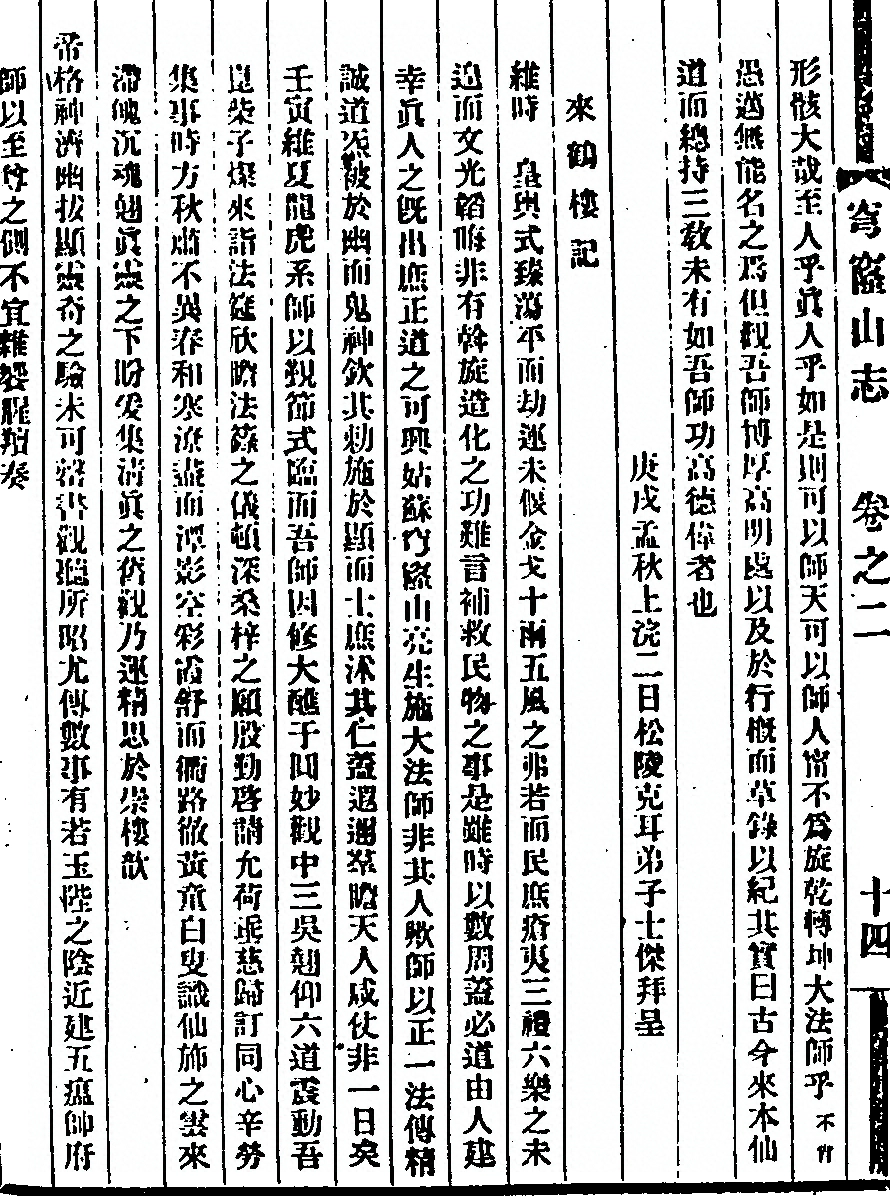 穹窿山志　卷之二　十四
形骸大哉至人乎眞人乎如是則可以師天可以師人甯不爲旋乾轉坤大法師乎不肖
愚邁無能名之爲但觀吾師博厚高明處以及於行概而草錄以紀其實曰古今來本仙
道而總持三敎未有如吾師功高德偉者也
庚戌孟秋上浣二日松陵克耳弟子士傑拜呈
來鶴樓記
維時　皇輿式臻蕩平而劫運未偃金戈十雨五風之弗若而民庶瘡夷三禮六樂之未
追而文光韜晦非有斡旋造化之功難言補救民物之事是雖時以數周蓋必道由人建
幸眞人之旣出庶正道之可興姑蘇穹窿山亮生施大法師非其人歟師以正一法傳精
誠道炁被於幽而鬼神欽其勅施於顯而士庶沐其仁蓋遐邇羣瞻天人咸仗非一日矣
壬寅維夏龍虎系師以覲節式臨而吾師因修大醮于圓妙觀中三吳翹仰六道震動吾
崑柴子燦來詣法筵欣瞻法籙之儀頓深桑梓之願殷勤啓請允荷垂慈歸訂同心辛勞
集事時方秋肅不異春和寒流盡而潭影空彩霞舒而衢路徹黃童白叟識仙斾之雲來
滯魄沉魂翹眞靈之下盼爰集淸眞之舊觀乃運精思於崇樓歆
帝格神濟幽拔顯靈奇之驗未可罄書觀聽所昭尤傳數事有若玉陛之陰近建五瘟帥府
師以至尊之側不宜雜娑腥羶奏